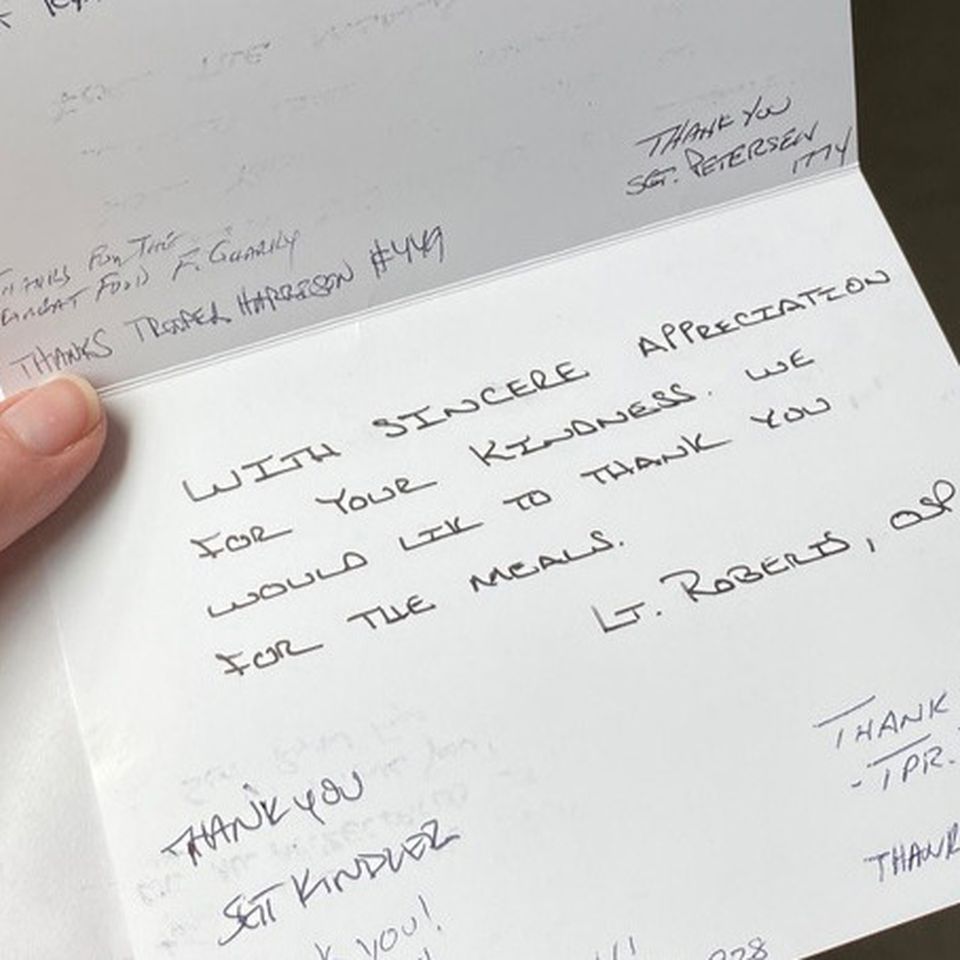 THANK YOU
SGT. PETERSEN
1774
THANKS FOR THE
GREAT FOOD
THANKS TROOPER HARRISON #449
WITH SINCERE APPRECIATION
FOR YOUR KINDNESS. WE
WOULD LIK TO THANK YOU
FOR THE MEALS.
LT. ROBERTS, OSP
THANK
- TPR.
THANK YOU
SGT KINDLER
THANK
YOU!